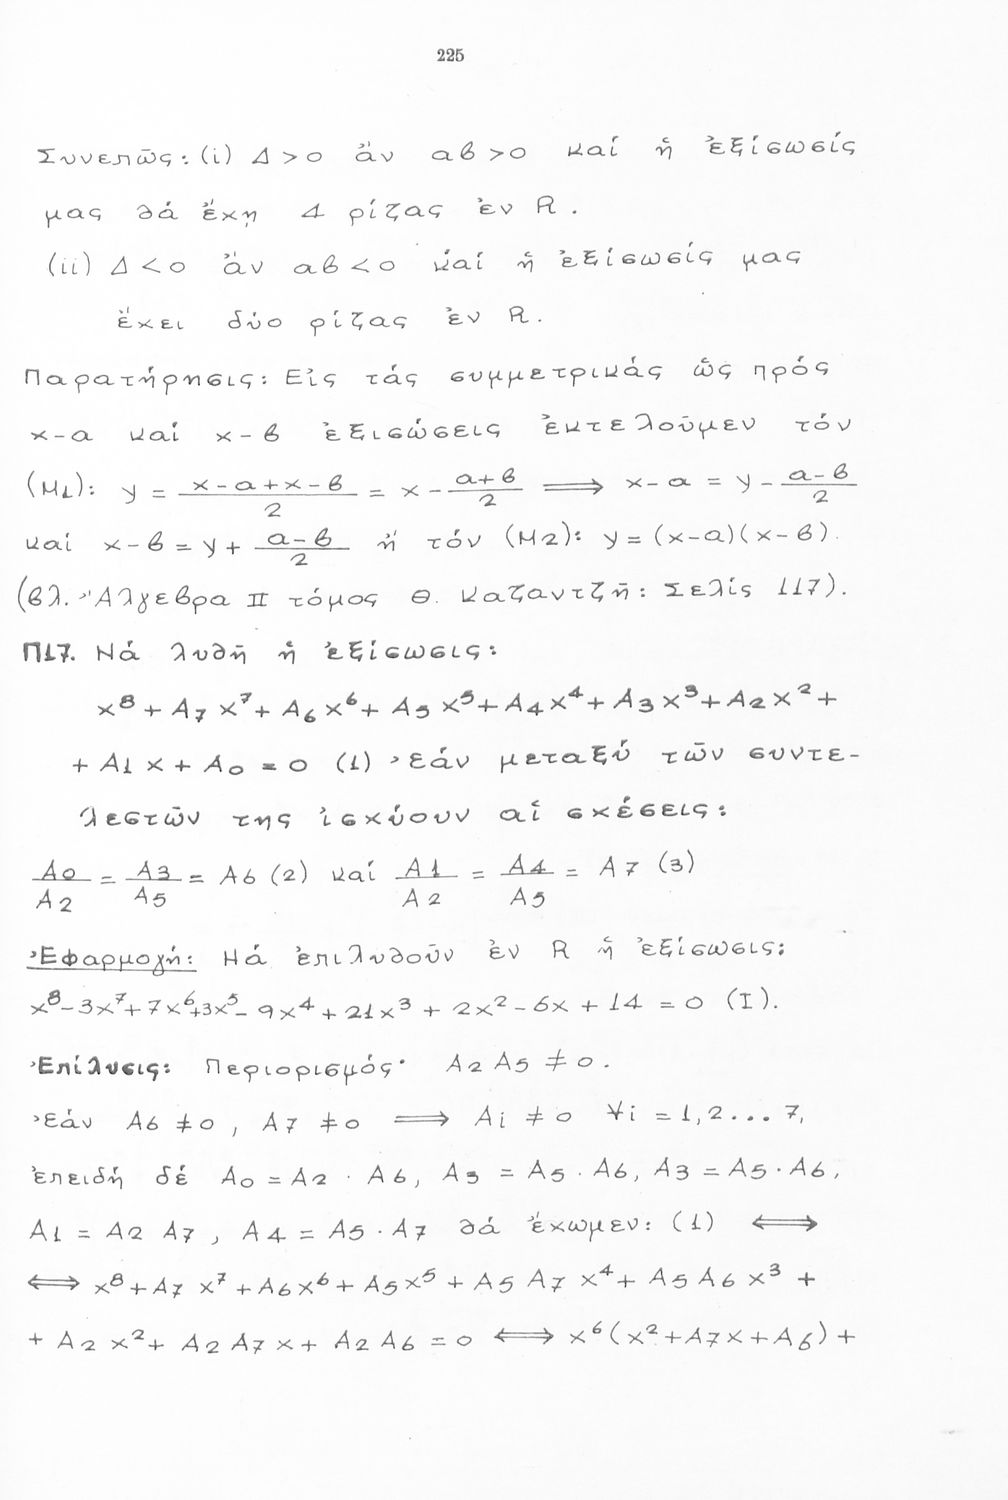 225
Συνεπῶς: (i) Δ > 0 ἄν αβ > 0 καί ἡ ἐξίσωσίς
μας θά ἔχῃ 4 ρίζας ἐν R.
(ii) Δ < 0 ἄν αβ < 0 καί ἡ ἐξίσωσίς μας
ἔχει δύο ρίζας ἐν R.
Παρατήρησις: Εἰς τάς συμμετρικάς ὥς πρός
x-α καί x-β ἐξισώσεις ἐκτελοῦμεν τόν
(M1): y = \frac{x-α+x-β}{2} = x - \frac{α+β}{2} ⟹ x-α = y - \frac{α-β}{2}
καί x-β = y + \frac{α-β}{2} ἤ τόν (M2): y = (x-α)(x-β).
(βλ. Ἄλγεβρα II τόμος Θ. Καζαντζῆ: Σελίς 117).
Π17. Νά λυθῆ ἡ ἐξίσωσις:
x⁸ + A₇ x⁷ + A₆ x⁶ + A₅ x⁵ + A₄ x⁴ + A₃ x³ + A₂ x² +
+ A1 x + A0 = 0 (1) Ἐάν μεταξύ τῶν συντε-
λεστῶν της ἰσχύουν αἱ σχέσεις:
\frac{A0}{A2} = \frac{A3}{A5} = A6 (2) καί \frac{A1}{A2} = \frac{A4}{A5} = A7 (3)
Ἐφαρμογή: Νά ἐπιλυθοῦν ἐν R ἡ ἐξίσωσις:
x⁸ - 3x⁷ + 7x⁶ + 3x⁵ - 9x⁴ + 21x³ + 2x² - 6x + 14 = 0 (I).
Ἐπίλυσις: Περιορισμός· A2 A5 ≠ 0.
Ἐάν A6 ≠ 0, A7 ≠ 0 ⟹ Ai ≠ 0 ∀i = 1,2... 7,
ἐπειδή δέ A0 = A2 · A6, A3 = A5 · A6, A3 = A5 · A6,
A1 = A2 A7, A4 = A5 · A7 θά ἔχωμεν: (1) ⟺
⟺ x⁸ + A7 x⁷ + A6 x⁶ + A5 x⁵ + A5 A7 x⁴ + A5 A6 x³ +
+ A2 x² + A2 A7 x + A2 A6 = 0 ⟺ x⁶(x² + A7x + A6) +